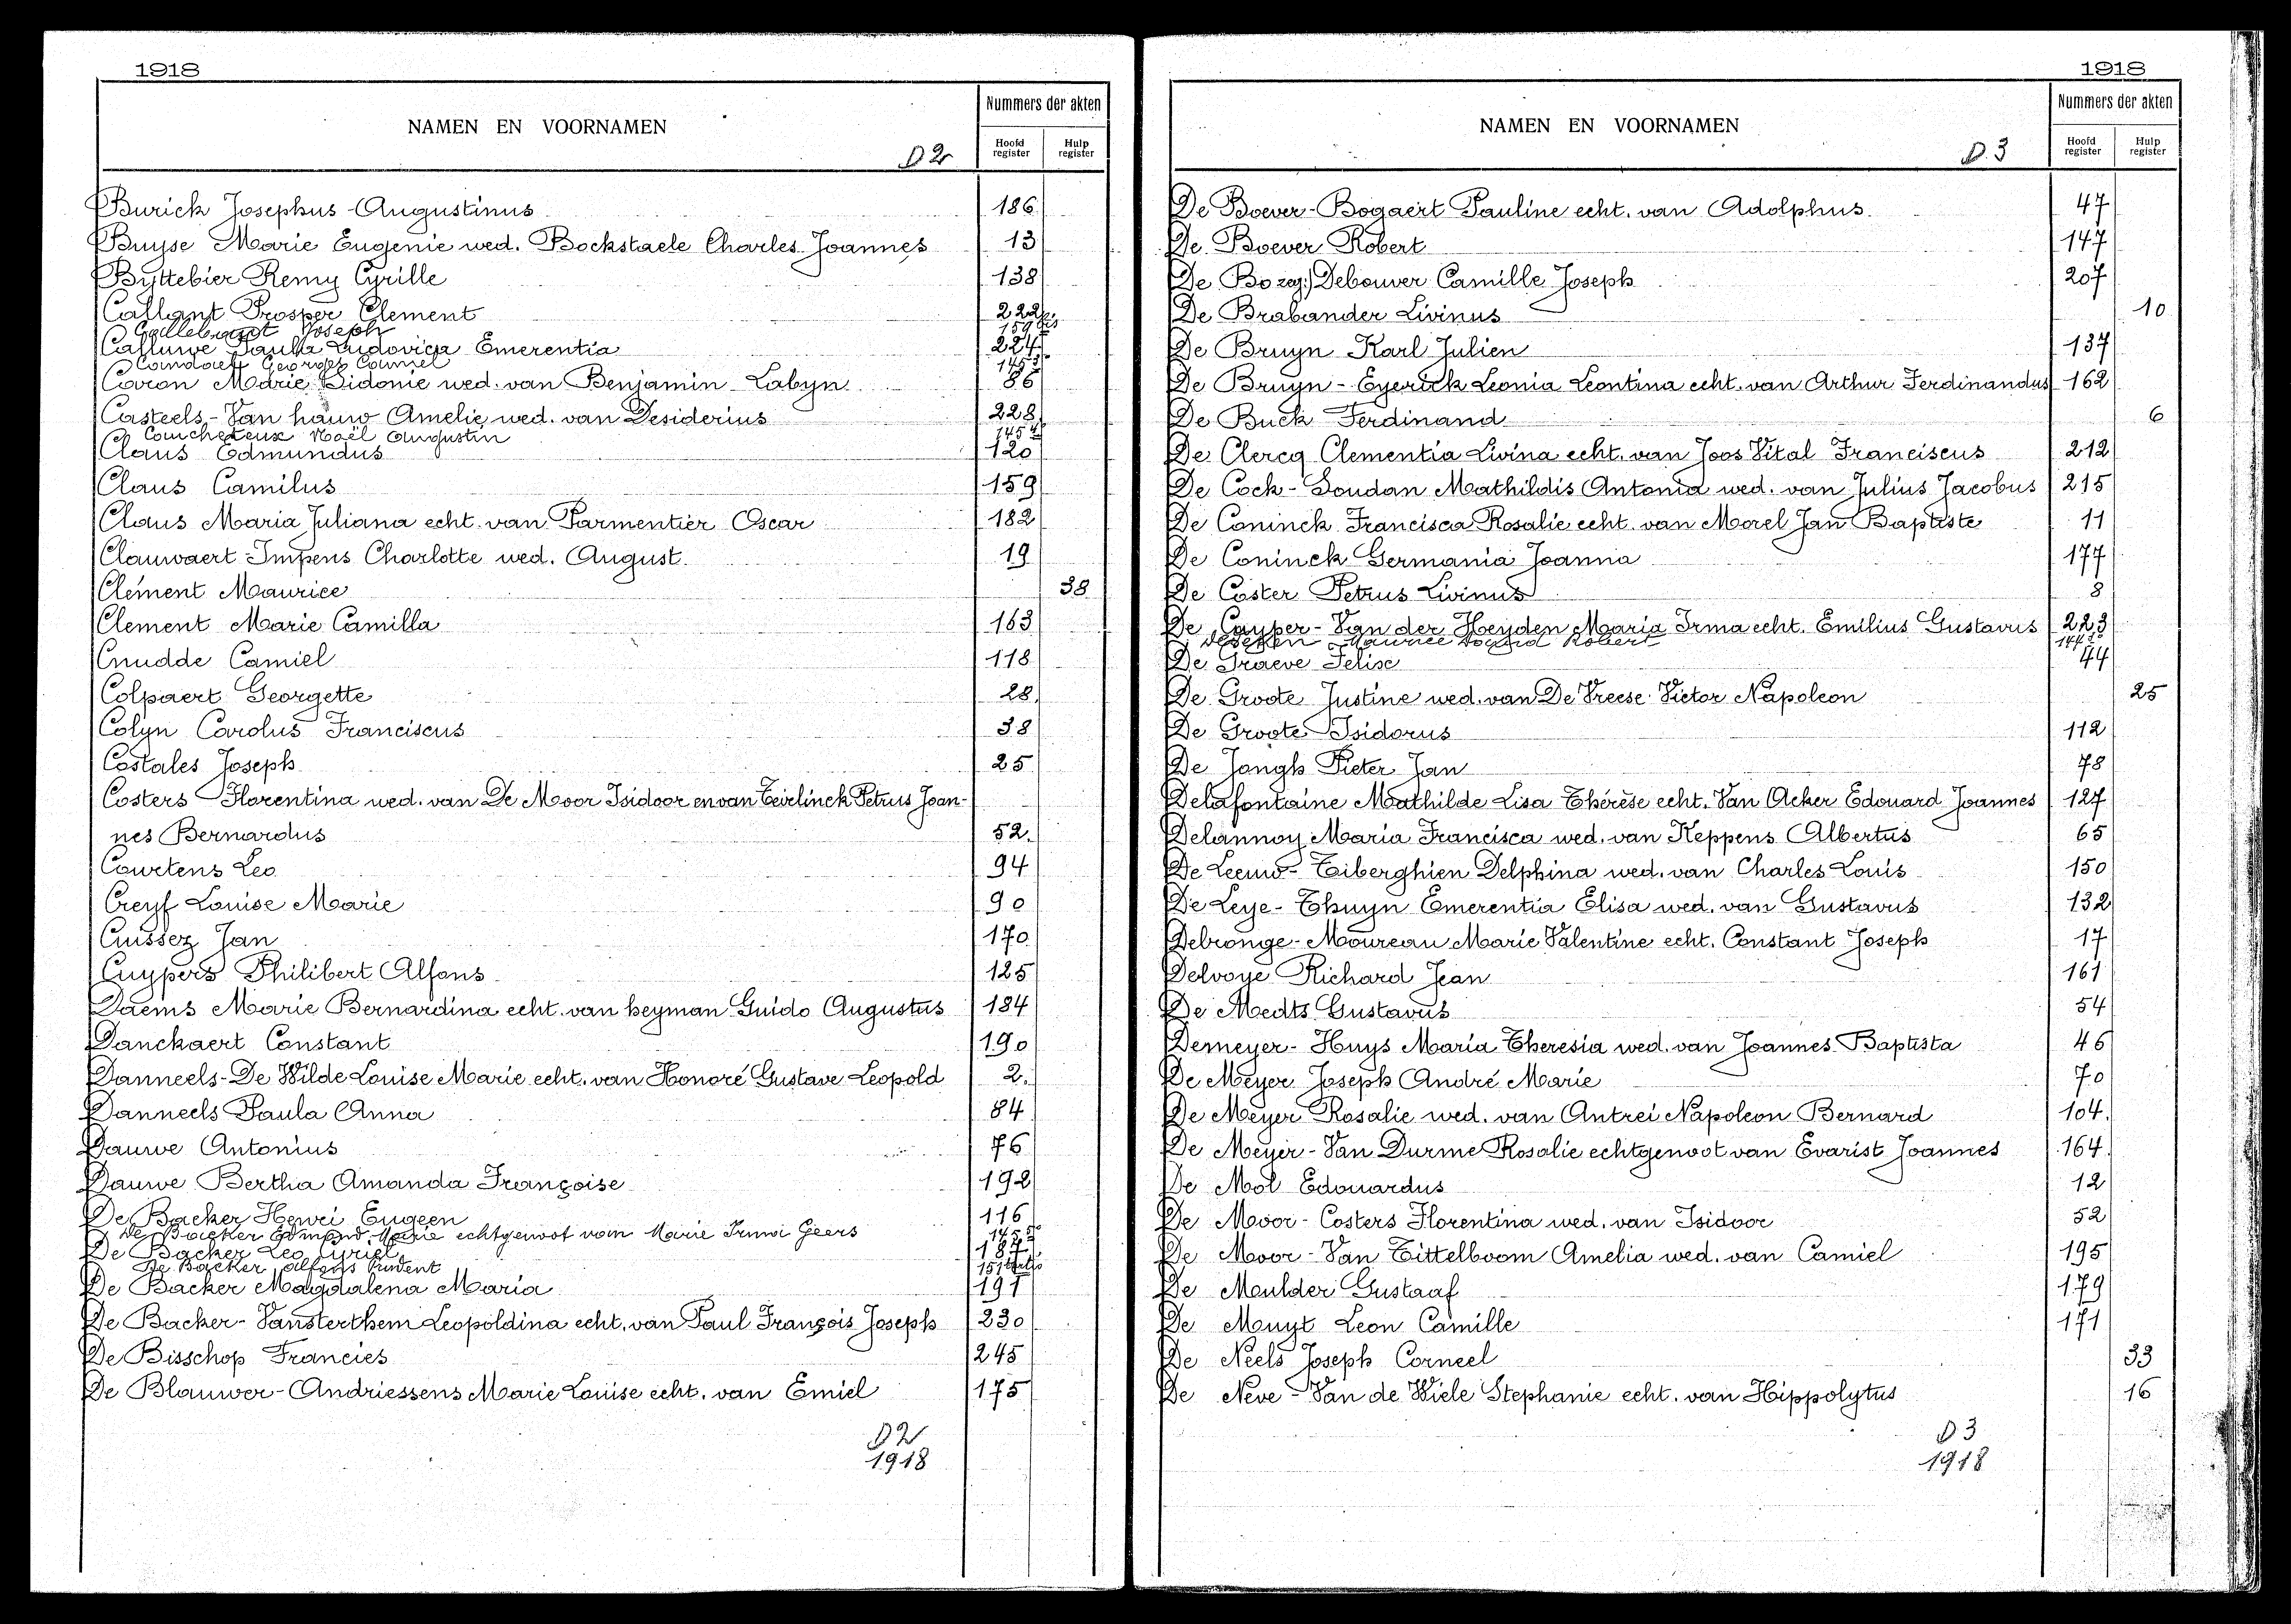 1918
NAMEN EN VOORNAMEN
D 2
Nummers der akten
Hoofd register
Hulp register
Burick Josephus Augustinus 186
Buyse Marie Eugenie wed. Bockstaele Charles Joannes 13
Byttebier Remy Cyrille 138
Callant Prosper Clement 222
Callebaut Joseph 159 bis
Calluwe Paula Ludovica Emerentia 224
Georges Camiel 145
Caron Marie Sidonie wed. van Benjamin Labyn 86
Casteels-Van hauw Amelie wed. van Desiderius 228
Coucheteux Noël Augustin 145
Claus Edmundus 120
Claus Camilus 159
Claus Maria Juliana echt. van Parmentier Oscar 182
Clauwaert-Impens Charlotte wed. August. 19
Clement Maurice 38
Clement Marie Camilla 163
Cnudde Camiel 118
Colpaert Georgette 28
Colyn Carolus Franciscus 38
Costales Joseph 25
Costers Florentina wed. van De Moor Isidoor en van Teirlinck Petrus Joan-
nes Bernardus 52.
Courtens Leo 94
Creyf Louise Marie 90
Cuissez Jan 170
Cuypers Philibert Alfons 125
Daems Marie Bernardina echt. van heyman Guido Augustus 184
Danckaert Constant 190
Danneels-De Wilde Louise Marie echt. van Honoré Gustave Leopold 2.
Danneels Paula Anna 84
Dauwe Antonius 76
Dauwe Bertha Amanda Françoise 192
De Backer Henri Eugeen 116
De Backer Edmond Marie echtgenoot van Marie Irma Geers 145
De Backer Leo Cyriel 187
De Backer Alfons Prudent 151
De Backer Magdalena Maria 191
De Backer-Vansterthem Leopoldina echt. van Paul François Joseph 230
De Bisschop Francies 245
De Blauwer-Andriessens Marie Louise echt. van Emiel 175
D 2
1918
1918
NAMEN EN VOORNAMEN
D. 3
Nummers der akten
Hoofd register
Hulp register
De Boever-Bogaert Pauline echt. van Adolphus. 47
De Boever Robert 147
De Bo zeg:) Debouver Camille Joseph 207
De Brabander Livinus 10
De Bruyn Karl Julien 137
De Bruyn-Eyerick Leonia Leontina echt. van Arthur Ferdinandus 162
De Buck Ferdinand 6
De Clercq Clementia Livina echt. van Joos Vital Franciscus 212
De Cock-Soudan Mathildis Antonia wed. van Julius Jacobus 215
De Coninck Francisca Rosalie echt. van Morel Jan Baptiste 11
De Coninck Germania Joanna 177
De Coster Petrus Livinus 8
De Cuyper-Van der Heyden Maria Irma echt. Emilius Gustavus 223
Maurice Robert
De Graeve Felise 44
De Groote Justine wed. van De Vreese Victor Napoleon 25
De Groote Isidorus 112
De Jongh Pieter Jan 78
Delafontaine Mathilde Lisa Thérèse echt. Van Acker Edouard Joannes 127
Delannoy Maria Francisca wed. van Keppens Albertus 65
De Leeuw-Tiberghien Delphina wed. van Charles Louis 150
De Leye-Thuyn Emerentia Elisa wed. van Gustavus 132
Delronge-Moureau Marie Valentine echt. Constant Joseph 17
Delvoye Richard Jean 161
De Medts Gustavus 54
Demeyer-Huys Maria Theresia wed. van Joannes Baptista 46
De Meyer Joseph André Marie 70
De Meyer Rosalie wed. van Antrei Napoleon Bernard 104.
De Meyer-Van Durme Rosalie echtgenoot van Evarist Joannes 164
De Mol Edouardus 12
De Moor-Costers Florentina wed. van Isidoor 52
De Moor-Van Tittelboom Amelia wed. van Camiel 195
De Meulder Gustaaf 179
De Muyt Leon Camille 171
De Neels Joseph Corneel 33
De Neve-Van de Wiele Stephanie echt. van Hippolytus 16
D 3
1918